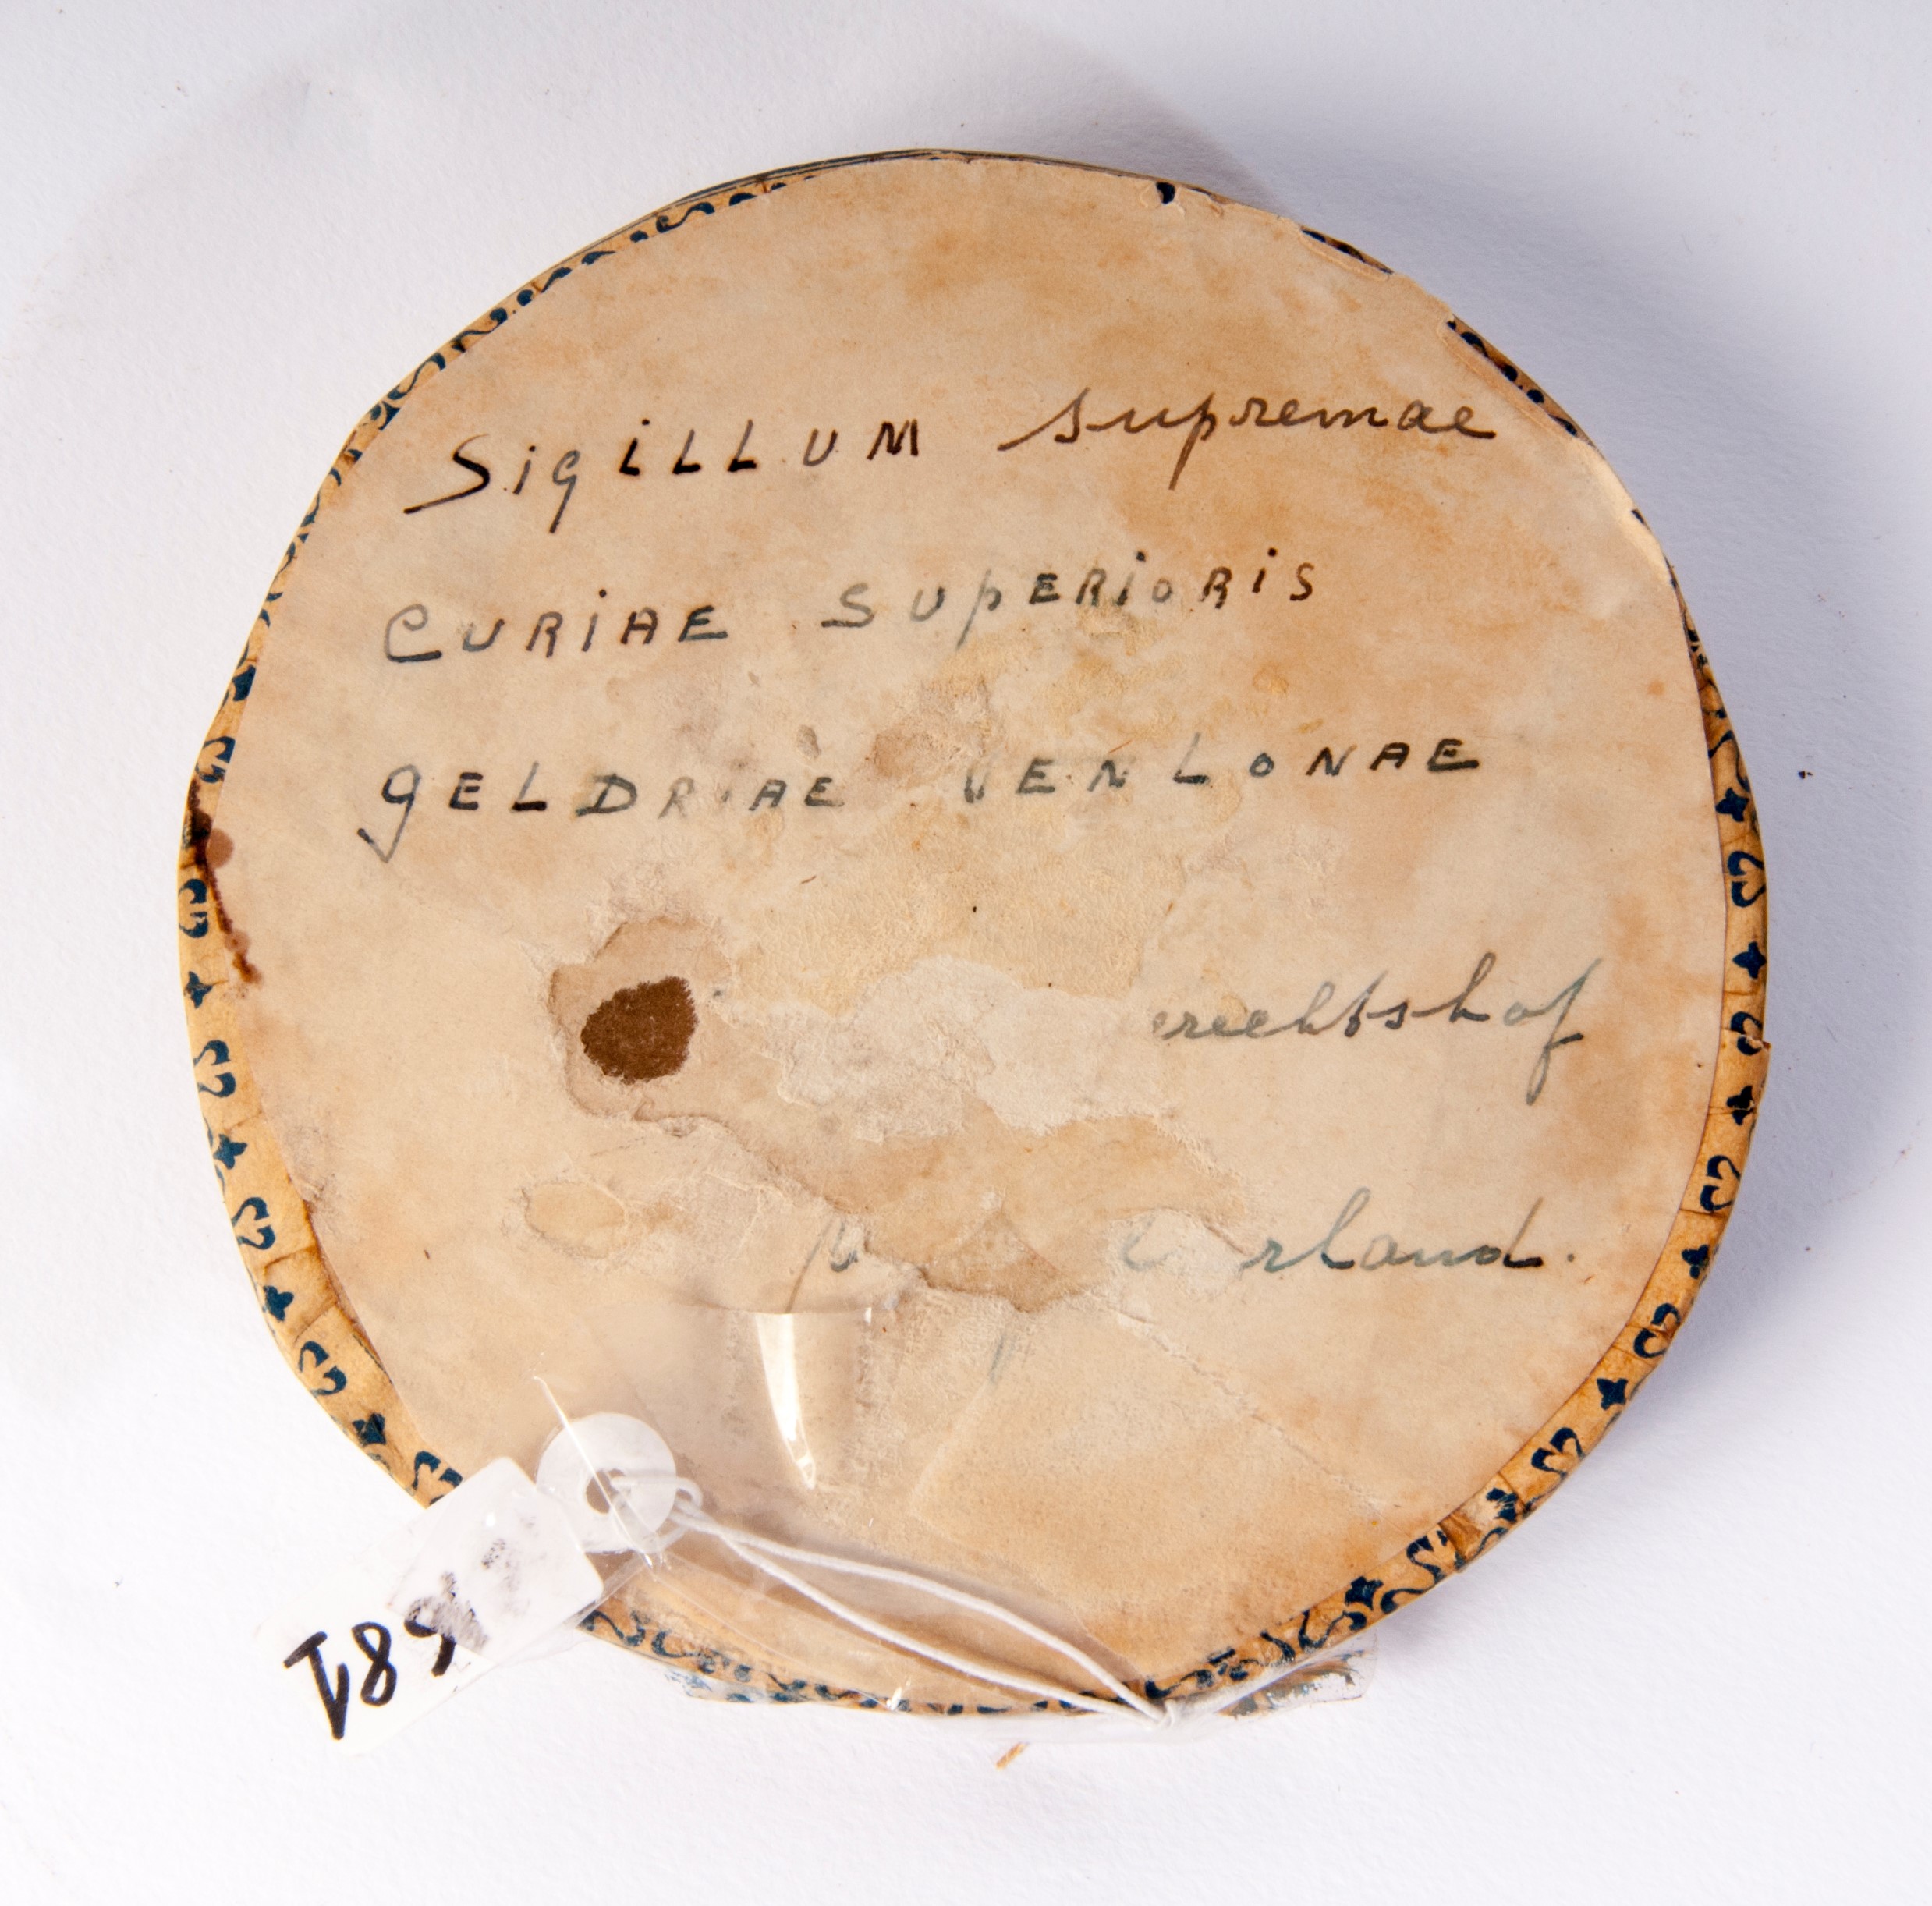 Sigillum supremae
CURIAE SUPERIORIS
GELDRIAE VENLONAE
erechtshof
rland.